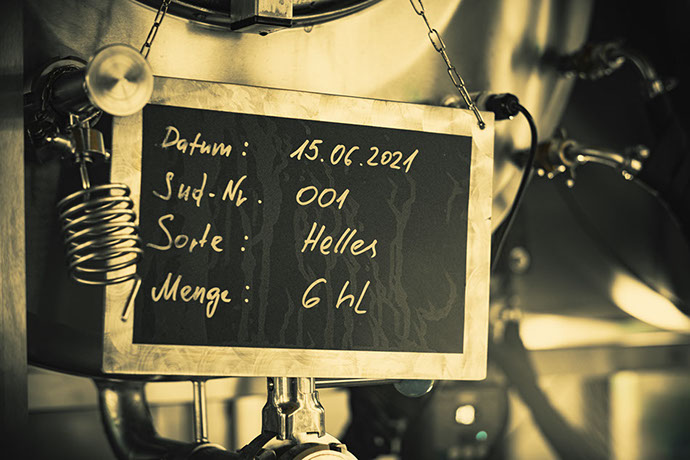 Datum: 15.06.2021
Sud-Nr. 001
Sorte: Helles
Menge: 6 hl